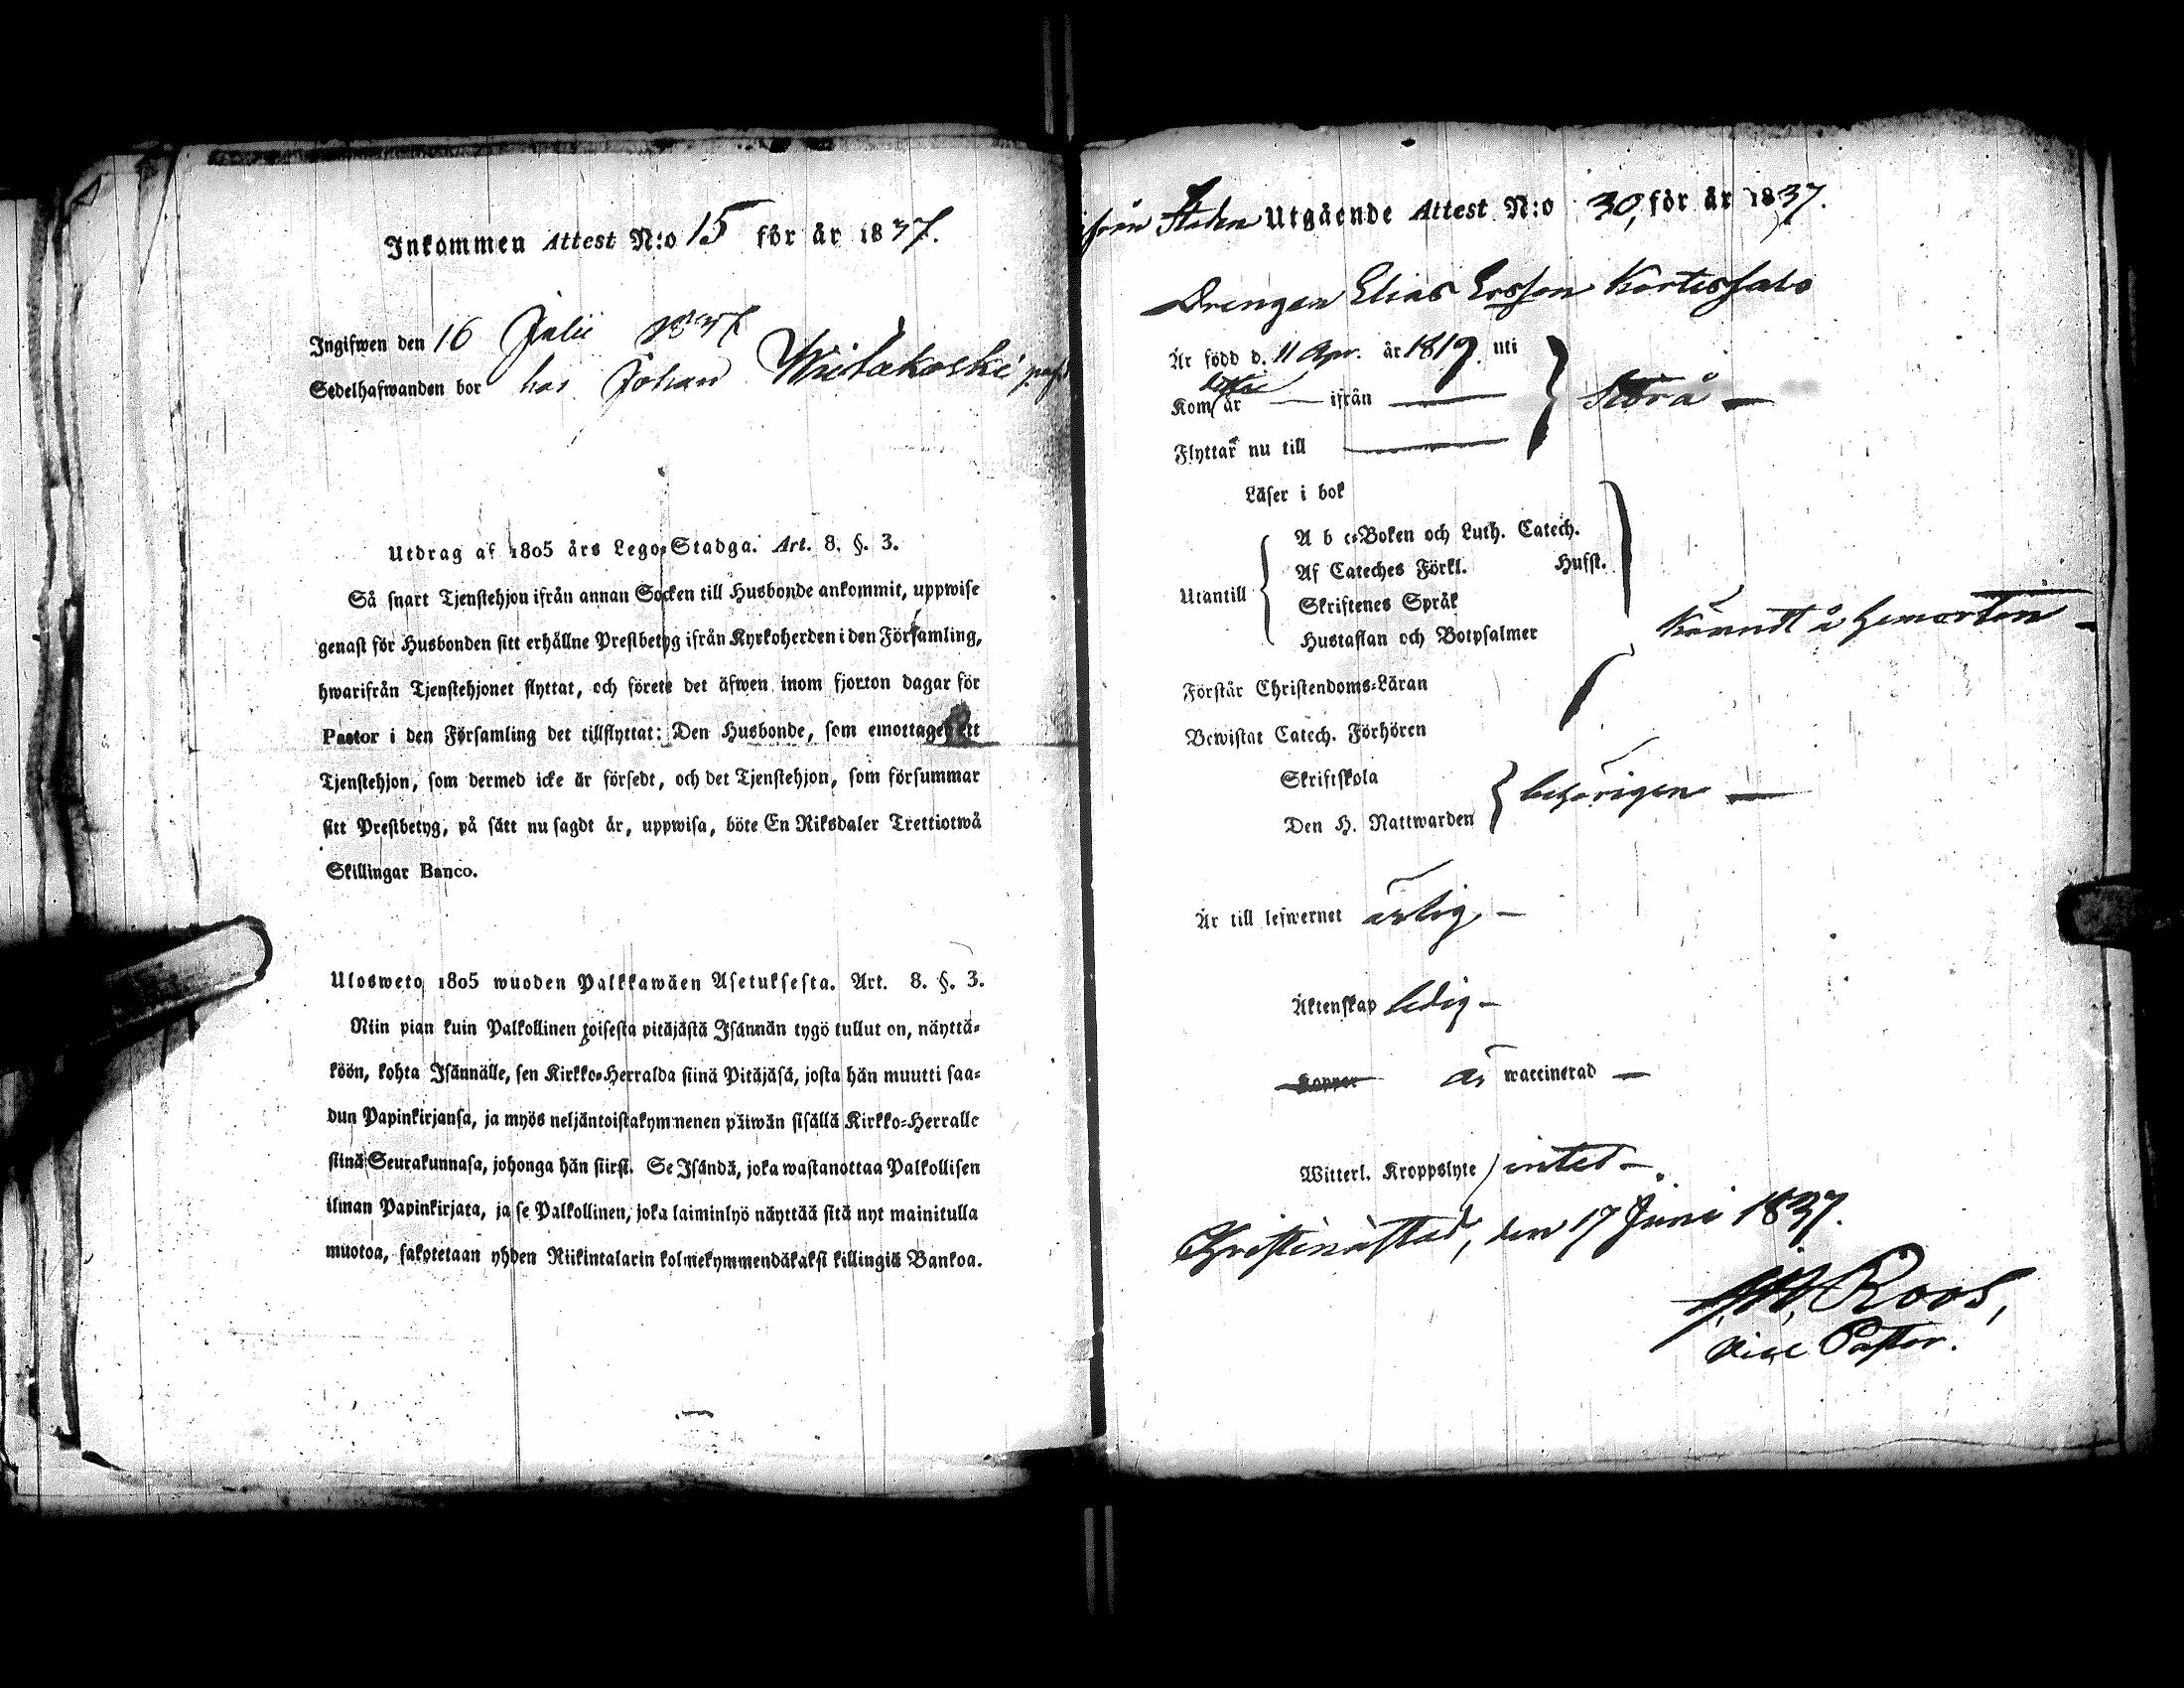 Inkommen Attest N:o 15 för år 1837.
Ingifwen den 16 Julii 1837
Sedelhafwanden bor hos Johan
Utdrag af 1805 års Lego-Stadga. Art. 8. §. 3.
Så snart Tjenstehjon ifrån annan Socken till Husbonde ankommit, uppwise
genast för Husbonden sitt erhållne Prestbetyg ifrån Kyrkoherden i den Församling,
hwarifrån Tjenstehjonet flyttat, och förete det äfwen inom fjorton dagar för
Pastor i den Församling det tillflyttat: Den Husbonde, som emottager ett
Tjenstehjon, som dermed icke är försedt, och det Tjenstehjon, som försummar
sitt Prestbetyg, på sätt nu sagdt är, uppwisa, böte En Riksdaler Trettiotwå
Skillingar Banco.
Ulosweto 1805 wuoden Palkkawäen Asetuksesta. Art. 8. §. 3.
Niin pian kuin Palkollinen toisesta pitäjästä Isännän tygö tullut on, näyttä-
köön, kohta Isännälle, sen Kirkko-Herralda siinä Pitäjäsä, josta hän muutti saa-
dun Papinkirjansa, ja myös neljäntoistakymmenen päiwän sisällä Kirkko-Herralle
siinä Seurakunnasa, johonga hän siirsi. Se Isändä, joka wastanottaa Palkollisen
ilman Papinkirjata, ja se Palkollinen, joka laiminlyö näyttää sitä nyt mainitulla
muotoa, sakotetaan yhden Riikintalarin kolmekymmendäkaksi killingiä Bankoa.
ifrån Staden Utgående Attest N:o 30, för år 1837.
Drengen Elias Ersson
Är född d. 11 Apr. år 1819. uti
Kom år — ifrån — Storå —
Flyttar nu till —
Läser i bok
A b c-Boken och Luth. Catech.
Af Cateches Förkl. Husst.
Utantill
Skriftenes Språk
Hustaflan och Botpsalmer
Kändt å hemorten —
Förstår Christendoms-Läran
Bewistat Catech. Förhören
Skriftskola
behörigen —
Den H. Nattwarden
Är till lefwernet ärlig —
Äktenskap ledig —
Koppor är waccinerad —
Witterl. Kroppslyte intet —
Christinæstad, den 17 Juni 1837.
Roos,
Vice Pastor.